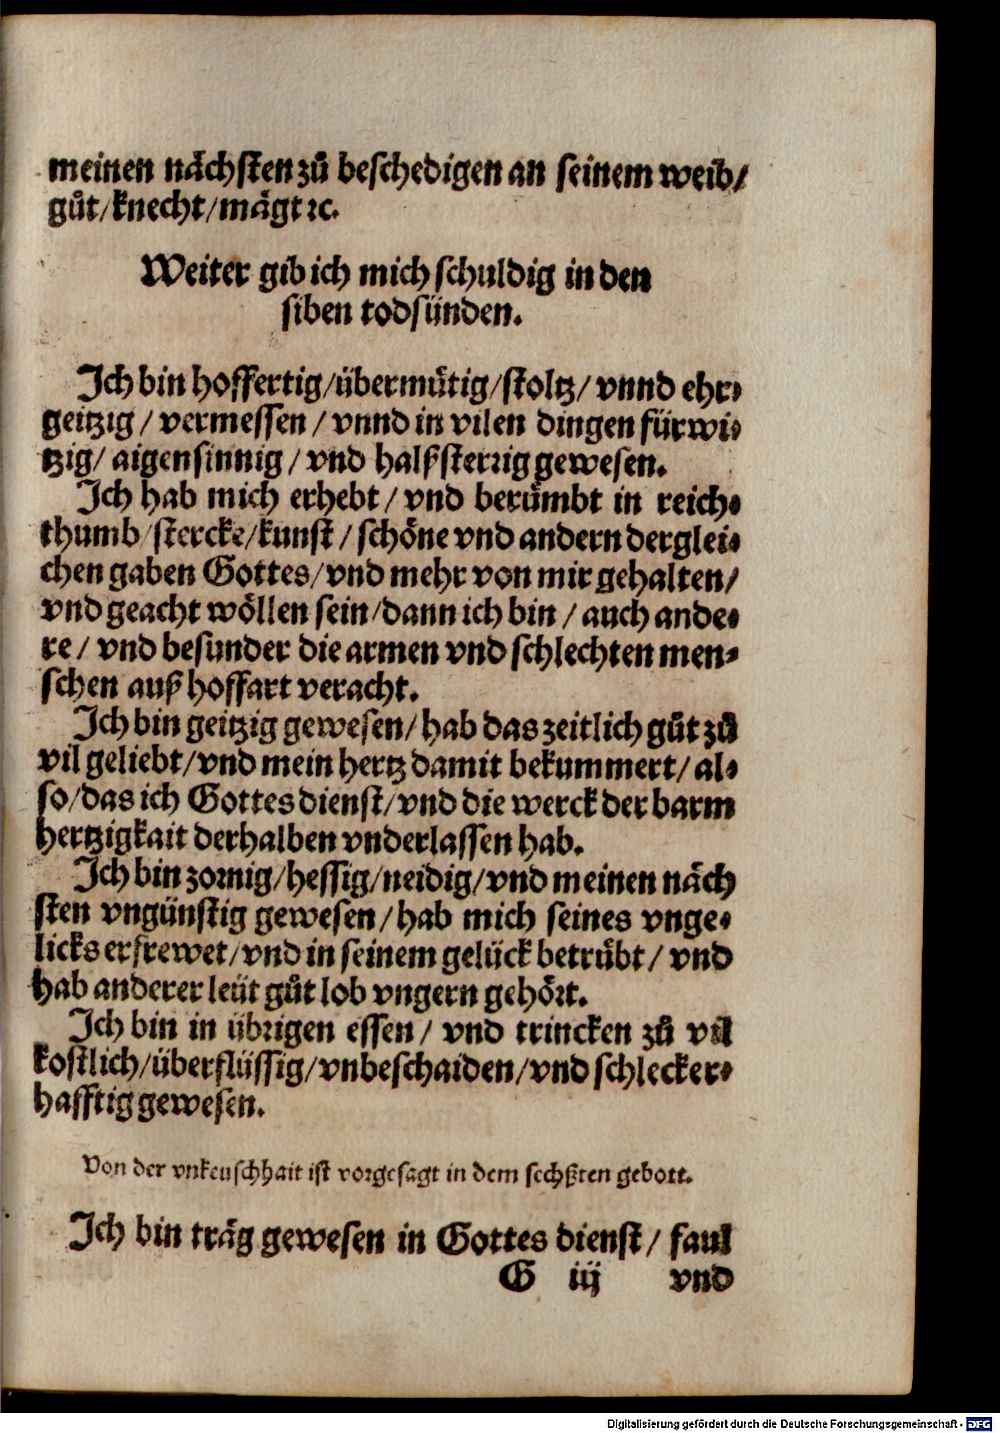 meinen nächsten zů beschedigen an seinem weib/
gůt/knecht/mägt ꝛc.
Weiter gib ich mich schuldig in den
siben todsünden.
Ich bin hoffertig/übermůtig/stoltz/ vnnd ehr⸗
geitzig / vermessen / vnnd in vilen dingen fürwi⸗
tzig/ aigensinnig / vnd halßsterrig gewesen.
Ich hab mich erhebt / vnd berůmbt in reich⸗
thumb/stercke/kunst / schöne vnd andern derglei⸗
chen gaben Gottes/vnd mehr von mir gehalten/
vnd geacht wöllen sein/dann ich bin / auch ande⸗
re / vnd besunder die armen vnd schlechten men⸗
schen auß hoffart veracht.
Ich bin geitzig gewesen/ hab das zeitlich gůt zů
vil geliebt/vnd mein hertz damit bekummert/ al⸗
so/das ich Gottes dienst/vnd die werck der barm
hertzigkait derhalben vnderlassen hab.
Ich bin zornig/hessig/neidig/vnd meinen näch
sten vngünstig gewesen/hab mich seines vnge⸗
licks erfrewet/vnd in seinem gelück betrůbt / vnd
hab anderer leüt gůt lob vngern gehört.
Ich bin in übrigen essen / vnd trincken zů vil
kostlich/überflüssig/vnbeschaiden/vnd schlecker⸗
hafftig gewesen.
Von der vnkeuschhait ist vorgesagt in dem sechßten gebott.
Ich bin träg gewesen in Gottes dienst / faul
G iij vnd
Digitalisierung gefördert durch die Deutsche Forschungsgemeinschaft - DFG